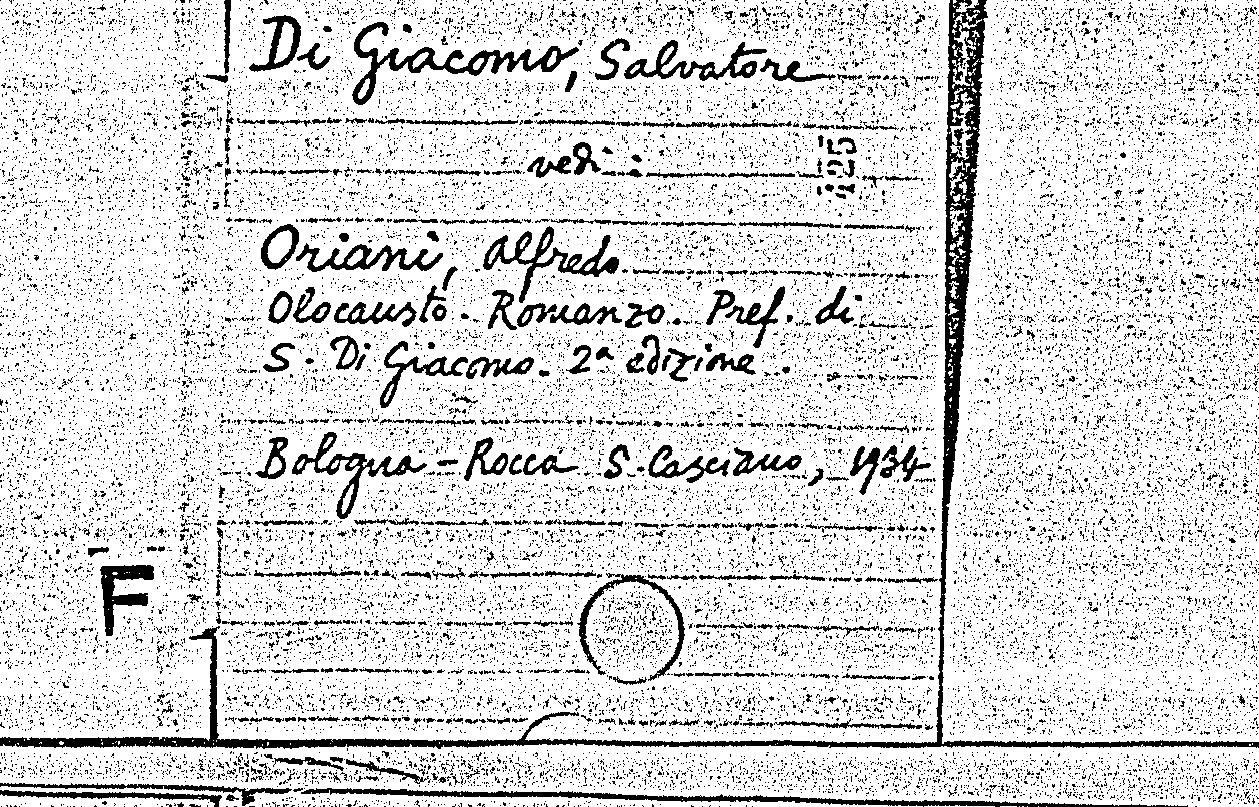 Di Giacomo, Salvatore
vedi:
425
Oriani, Alfredo
Olocausto. Romanzo. Pref. di
S. Di Giacomo. 2ª edizione.
Bologna - Rocca S. Casciano, 1934
F